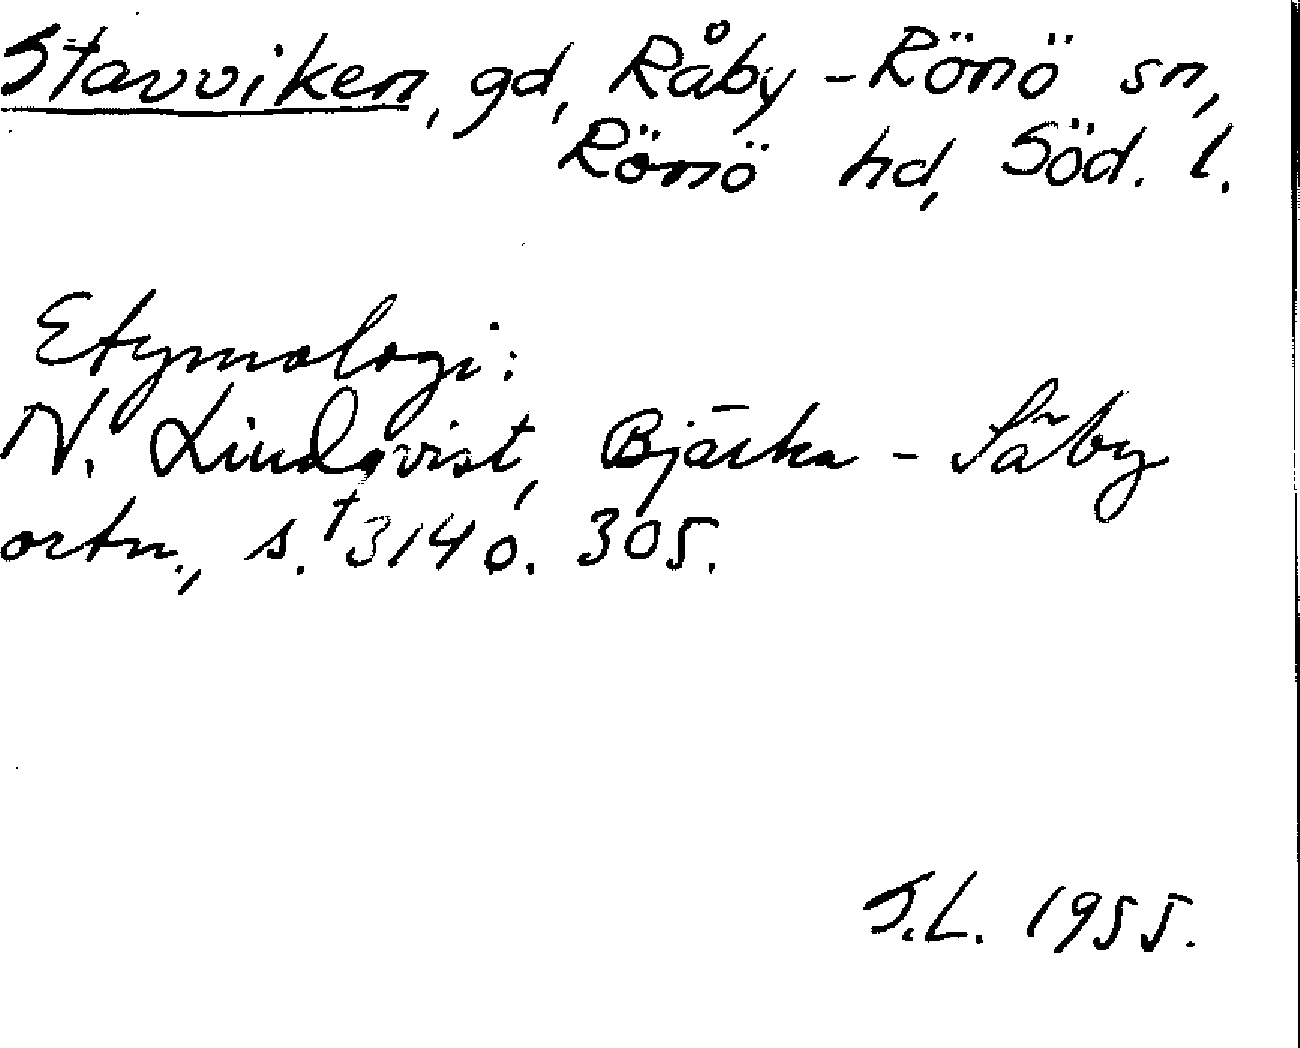 Stavviken, gd, Råby-Rönö sn,
Rönö hd, Söd. l.
Etymologi:
N. Lindqvist, Bjärka-Säby
ortn., s. †314 o. 305.
S.L. 1955.